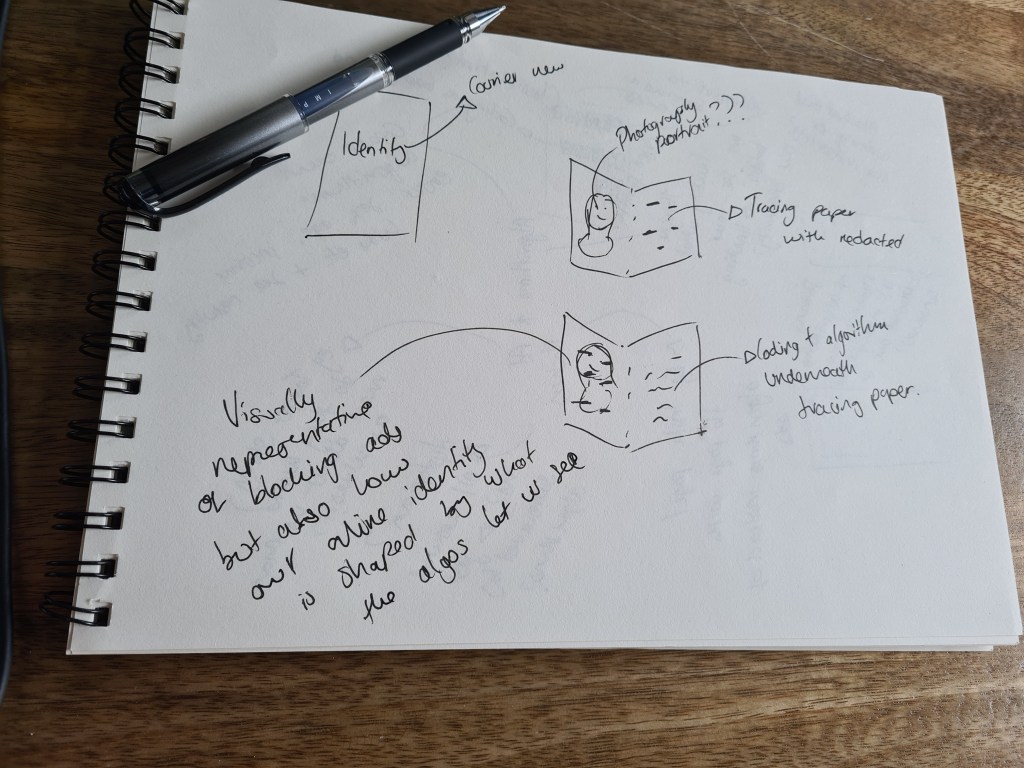 Identity
Courier new
Photography
portrait???
Tracing paper
with redacted
Coding + algorithm
underneath
tracing paper.
Visually
representative
of blocking ads
but also how
our online identity
is shaped by what
the algos let us see